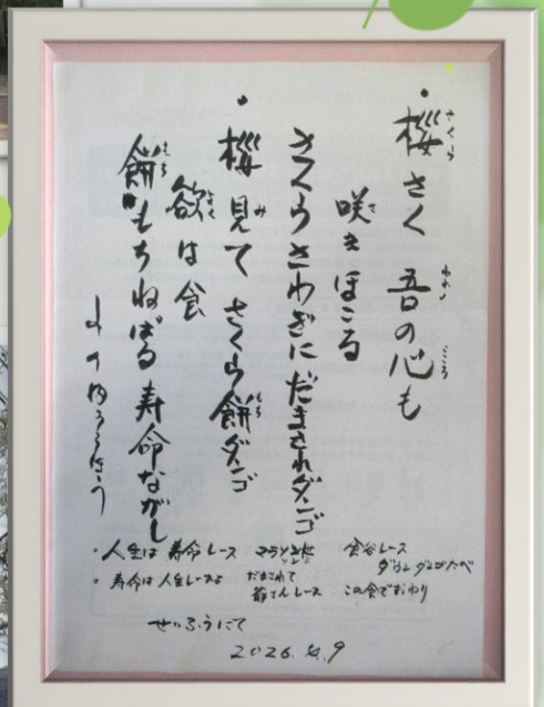 ・桜さく 吾の心も
咲きほこる
さくらさわぎにだまされダンゴ
・桜見て さくら餅ダンゴ
欲は食
餅もちねばる寿命ながし
・人生は 寿命レース マラソン 食谷レース
・寿命は人生レースよ だまされて
爺さんレース この食でおわり
せいふうにて
2026.4.9